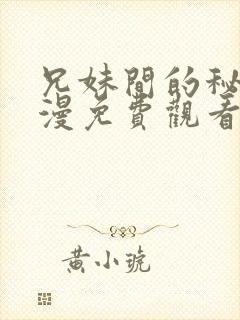 兄妹間的秘
漫免費觀看
黃小琥